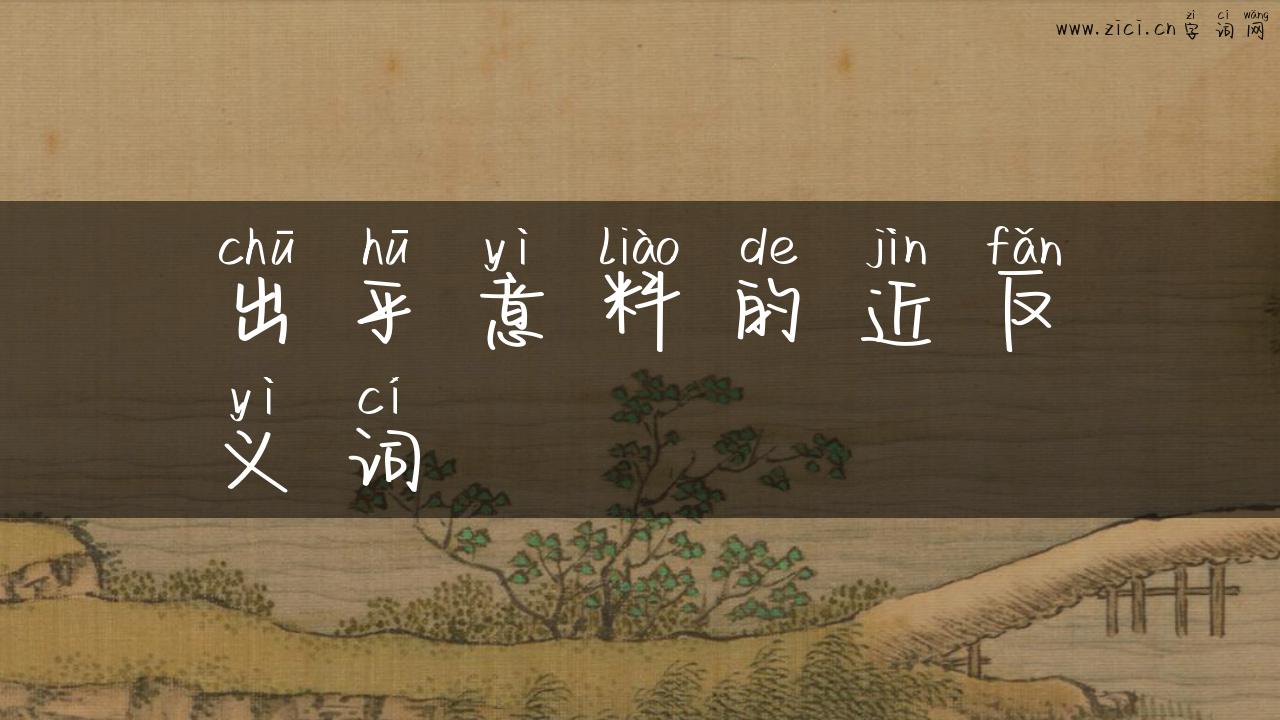 zì cí wǎng
www.zici.cn 字词网
chū hū yì liào de jìn fǎn
出乎意料的近反
yì cí
义词